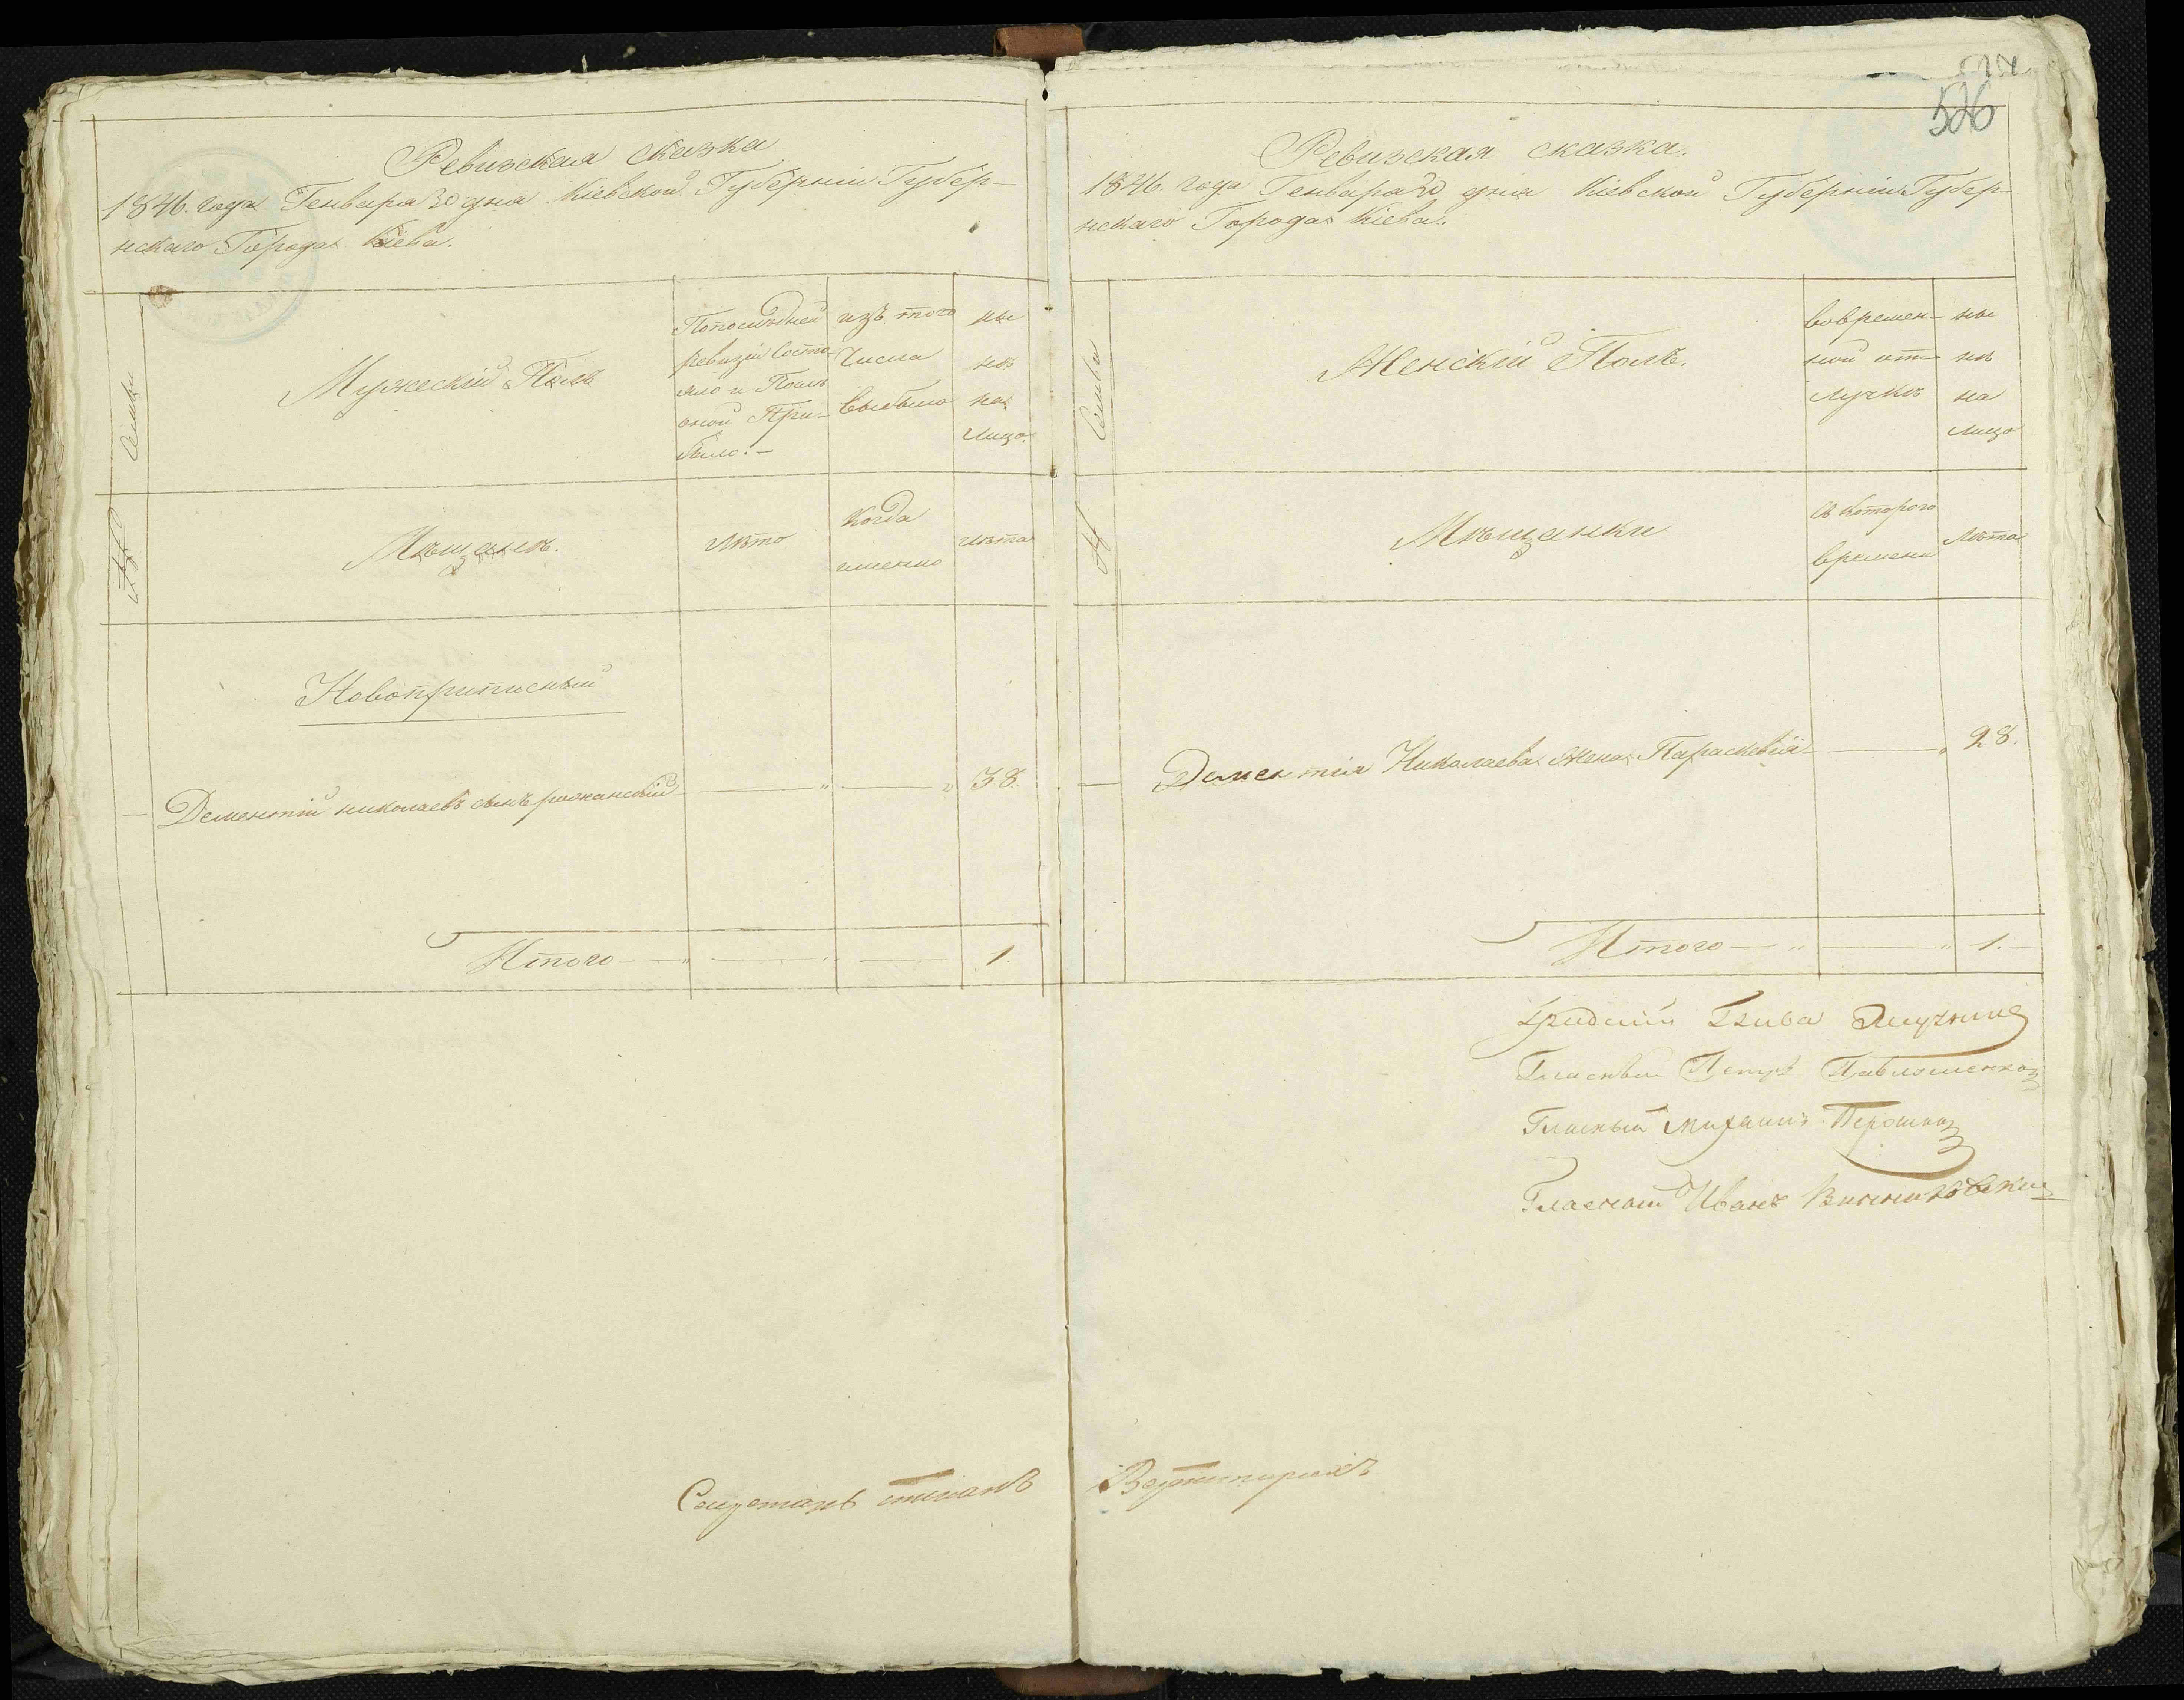 526
Ревизская сказка
1846. года Генваря 30 дня Кіевской Губерніи Губер-
нскаго Города Кіева.
№ Семьи
Мужескій Полъ
Попослѣдней
ревизіи Состо-
яло и Послѣ
оной При-
было.-
изъ того
Числа
выбыло
ны
нѣ
на
лицо.
Мѣщанъ.
Лѣто
Когда
именно
лѣта
Новоприписный
Дементій николаевъ сынъ
38.
Итого
1.
Ревизская сказка.
1846. года Генваря 30 дня Кіевской Губерніи Губер-
нскаго Города Кіева.
№ Семьи
Женскій Полъ.
вовремен-
ной от-
лучкѣ
ны
нѣ
на
лицо
Мѣщанки
Съ Которого
времени
Лѣта
Дементія Николаева Жена Параскевія
28.
Итого
1.
Градскій Глава
Гласный Петръ Павлошенко
Гласный Михаилъ
Гласный Иванъ Винниковскій
Секретарь